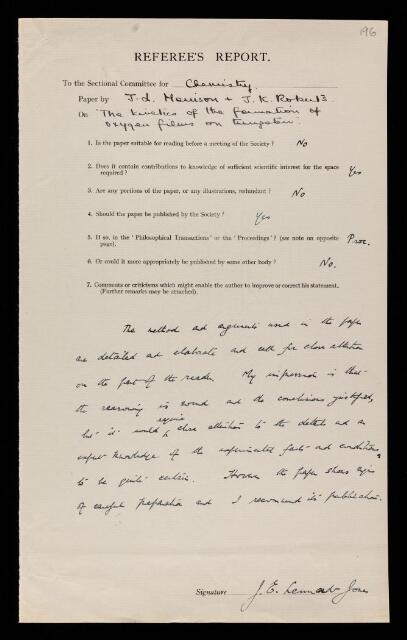 196
REFEREE'S REPORT.
To the Sectional Committee for Chemistry.
Paper by J. L. Morrison + J. K. Roberts
On "The kinetics of the formation of
oxygen films on tungsten.
1. Is the paper suitable for reading before a meeting of the Society? No
2. Does it contain contributions to knowledge of sufficient scientific interest for the space
required? Yes
3. Are any portions of the paper, or any illustrations, redundant? No
4. Should the paper be published by the Society? Yes
5. If so, in the 'Philosophical Transactions' or the 'Proceedings'? (see note on opposite
page). Proc.
6. Or could it more appropriately be published by some other body? No.
7. Comments or criticisms which might enable the author to improve or correct his statement.
(Further remarks may be attached).
The method and arguments used in the paper
are detailed and elaborate and call for close attention
on the part of the reader. My impression is that
the reasoning is sound and the conclusions justified,
but it would require close attention to the details and an
expert knowledge of the experimental facts and conditions,
to be quite certain. However the paper shows signs
of careful preparation and I recommend its publication.
Signature J. E. Lennard-Jones